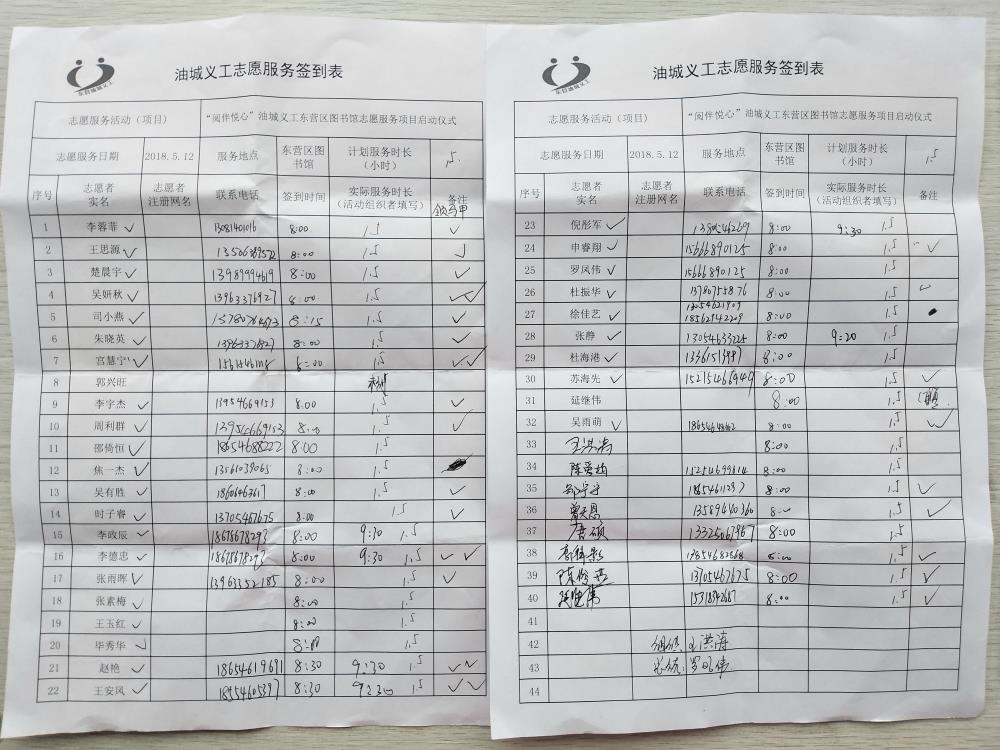 东营油城义工
油城义工志愿服务签到表
志愿服务活动（项目） “阅伴悦心”油城义工东营区图书馆志愿服务项目启动仪式
志愿服务日期 2018.5.12 服务地点 东营区图书馆 计划服务时长（小时） 1.5
序号 志愿者实名 志愿者注册网名 联系电话 签到时间 实际服务时长（活动组织者填写） 备注 领马甲
1 李蓉菲 ✓ 13081401016 8:00 1.5 ✓
2 王思源 ✓ 8:00 1.5 ✓
3 楚晨宇 ✓ 13989994619 8:00 1.5 ✓
4 吴妍秋 ✓ 13963376927 8:00 1.5 ✓✓
5 司小燕 ✓ 8:15 1.5 ✓
6 朱晓英 ✓ 8:00 1.5 ✓
7 宫慧宁 ✓ 8:00 1.5 ✓✓
8 郭兴旺
9 李宇杰 ✓ 13954669153 8:00 1.5 ✓
10 周利群 ✓ 13954669153 8:00 1.5 ✓
11 邵倚恒 ✓ 18654688222 8:00 1.5
12 焦一杰 ✓ 13561039065 8:00 1.5
13 吴有胜 ✓ 8:00 1.5 ✓
14 时子睿 ✓ 13705467675 8:00 1.5 ✓
15 李政辰 ✓ 18678678293 8:00 9:30 1.5
16 李德忠 ✓ 18678678293 8:00 9:30 1.5 ✓✓
17 张雨晖 ✓ 13963352185 8:00 1.5 ✓
18 张素梅 ✓ 8:00 1.5
19 王玉红 ✓ 8:00 1.5
20 毕秀华 ✓ 8:00 1.5
21 赵艳 ✓ 18654619691 8:30 9:30 1.5 ✓✓
22 王安风 ✓ 18954605397 8:30 9:30 1.5 ✓✓
东营油城义工
油城义工志愿服务签到表
志愿服务活动（项目） “阅伴悦心”油城义工东营区图书馆志愿服务项目启动仪式
志愿服务日期 2018.5.12 服务地点 东营区图书馆 计划服务时长（小时） 1.5
序号 志愿者实名 志愿者注册网名 联系电话 签到时间 实际服务时长（活动组织者填写） 备注
23 倪彤军 ✓ 8:00 9:30 1.5
24 申睿翔 ✓ 15666890125 8:00 1.5 ✓
25 罗凤伟 ✓ 15666890125 8:00 1.5
26 杜振华 ✓ 13780755876 8:00 1.5 ✓
27 徐佳艺 ✓ 13054621909 18562942209 8:00 1.5
28 张静 ✓ 13054633225 8:00 9:20 1.5
29 杜海港 ✓ 8:00 1.5
30 苏海先 ✓ 15215466949 8:00 1.5 ✓
31 延继伟 8:00 1.5
32 吴雨萌 ✓ 8:00 1.5 ✓
33 王洪涛 8:00 1.5
34 15254699614 8:00 1.5
35 郑宁宁 18654611297 8:00 1.5 ✓
36 曾天恩 13589440360 8:00 1.5 ✓
37 唐硕 13325067967 8:00 1.5
38 8:00 1.5 ✓
39 13705467675 8:00 1.5 ✓
40 15318342687 8:00 1.5 ✓
41
42 王洪涛
43
44